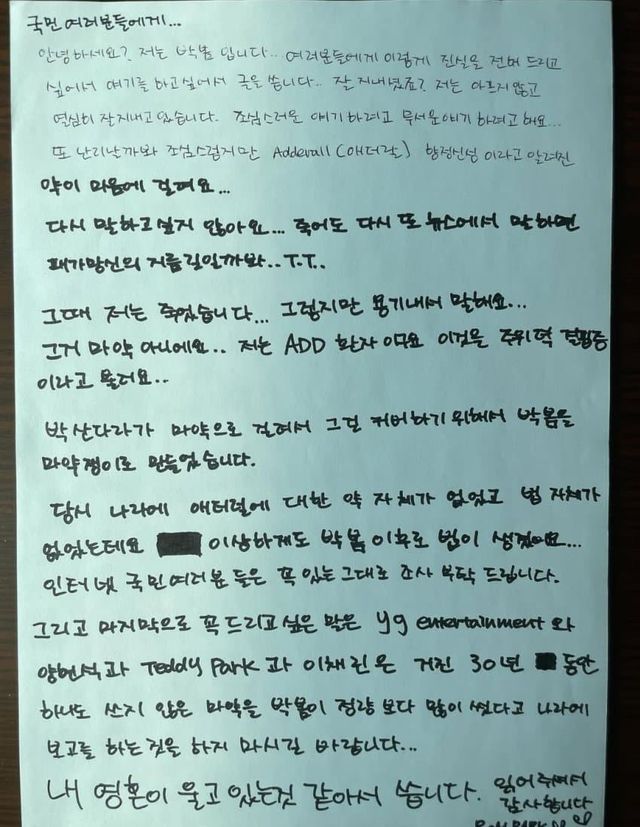 국민 여러분들에게...
안녕하세요? 저는 박봄 입니다.. 여러분들에게 이렇게 진실을 전해 드리고
싶어서 얘기를 하고싶어서 글을 씁니다.. 잘 지내셨죠? 저는 아프지 않고
열심히 잘지내고 있습니다. 조심스러운 얘기하려고 무서운얘기 하려고 해요...
또 난리날까봐 조심스럽지만 Adderall (애더랄) 향정신성 이라고 알려진
약이 마음에 걸려요...
다시 말하고싶지 않아요... 죽어도 다시 또 뉴스에서 말하면
패가망신의 지름길일까봐..T.T..
그때 저는 죽었습니다... 그렇지만 용기내서 말해요...
그거 마약 아니에요.. 저는 ADD 환자 이고요 이것을 주위력 결핍증
이라고 불러요..
박산다라가 마약으로 걸려서 그걸 커버하기 위해서 박봄을
마약쟁이로 만들었습니다.
당시 나라에 애터럴에 대한 약 자체가 없었고 법 자체가
없었는데요 이상하게도 박봄 이후로 법이 생겼어요...
인터넷 국민여러분 들은 꼭 있는그대로 조사 부탁 드립니다.
그리고 마지막으로 꼭드리고싶은 말은 yg entertainment 와
양현석과 Teddy Park 과 이채린은 거진 30년 동안
하나도 쓰지 않은 마약을 박봄이 정량 보다 많이 썼다고 나라에
보고를 하는것을 하지 마시길 바랍니다...
내 영혼이 울고 있는것 같아서 씁니다. 읽어주셔서
감사합니다